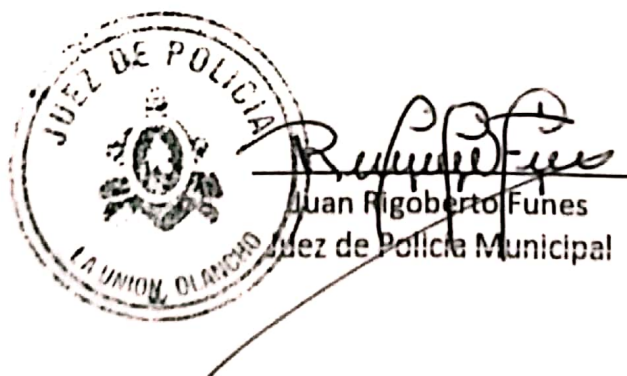 JUEZ DE POLICIA
LA UNION, OLANCHO
Juan Rigoberto Funes
Juez de Policia Municipal